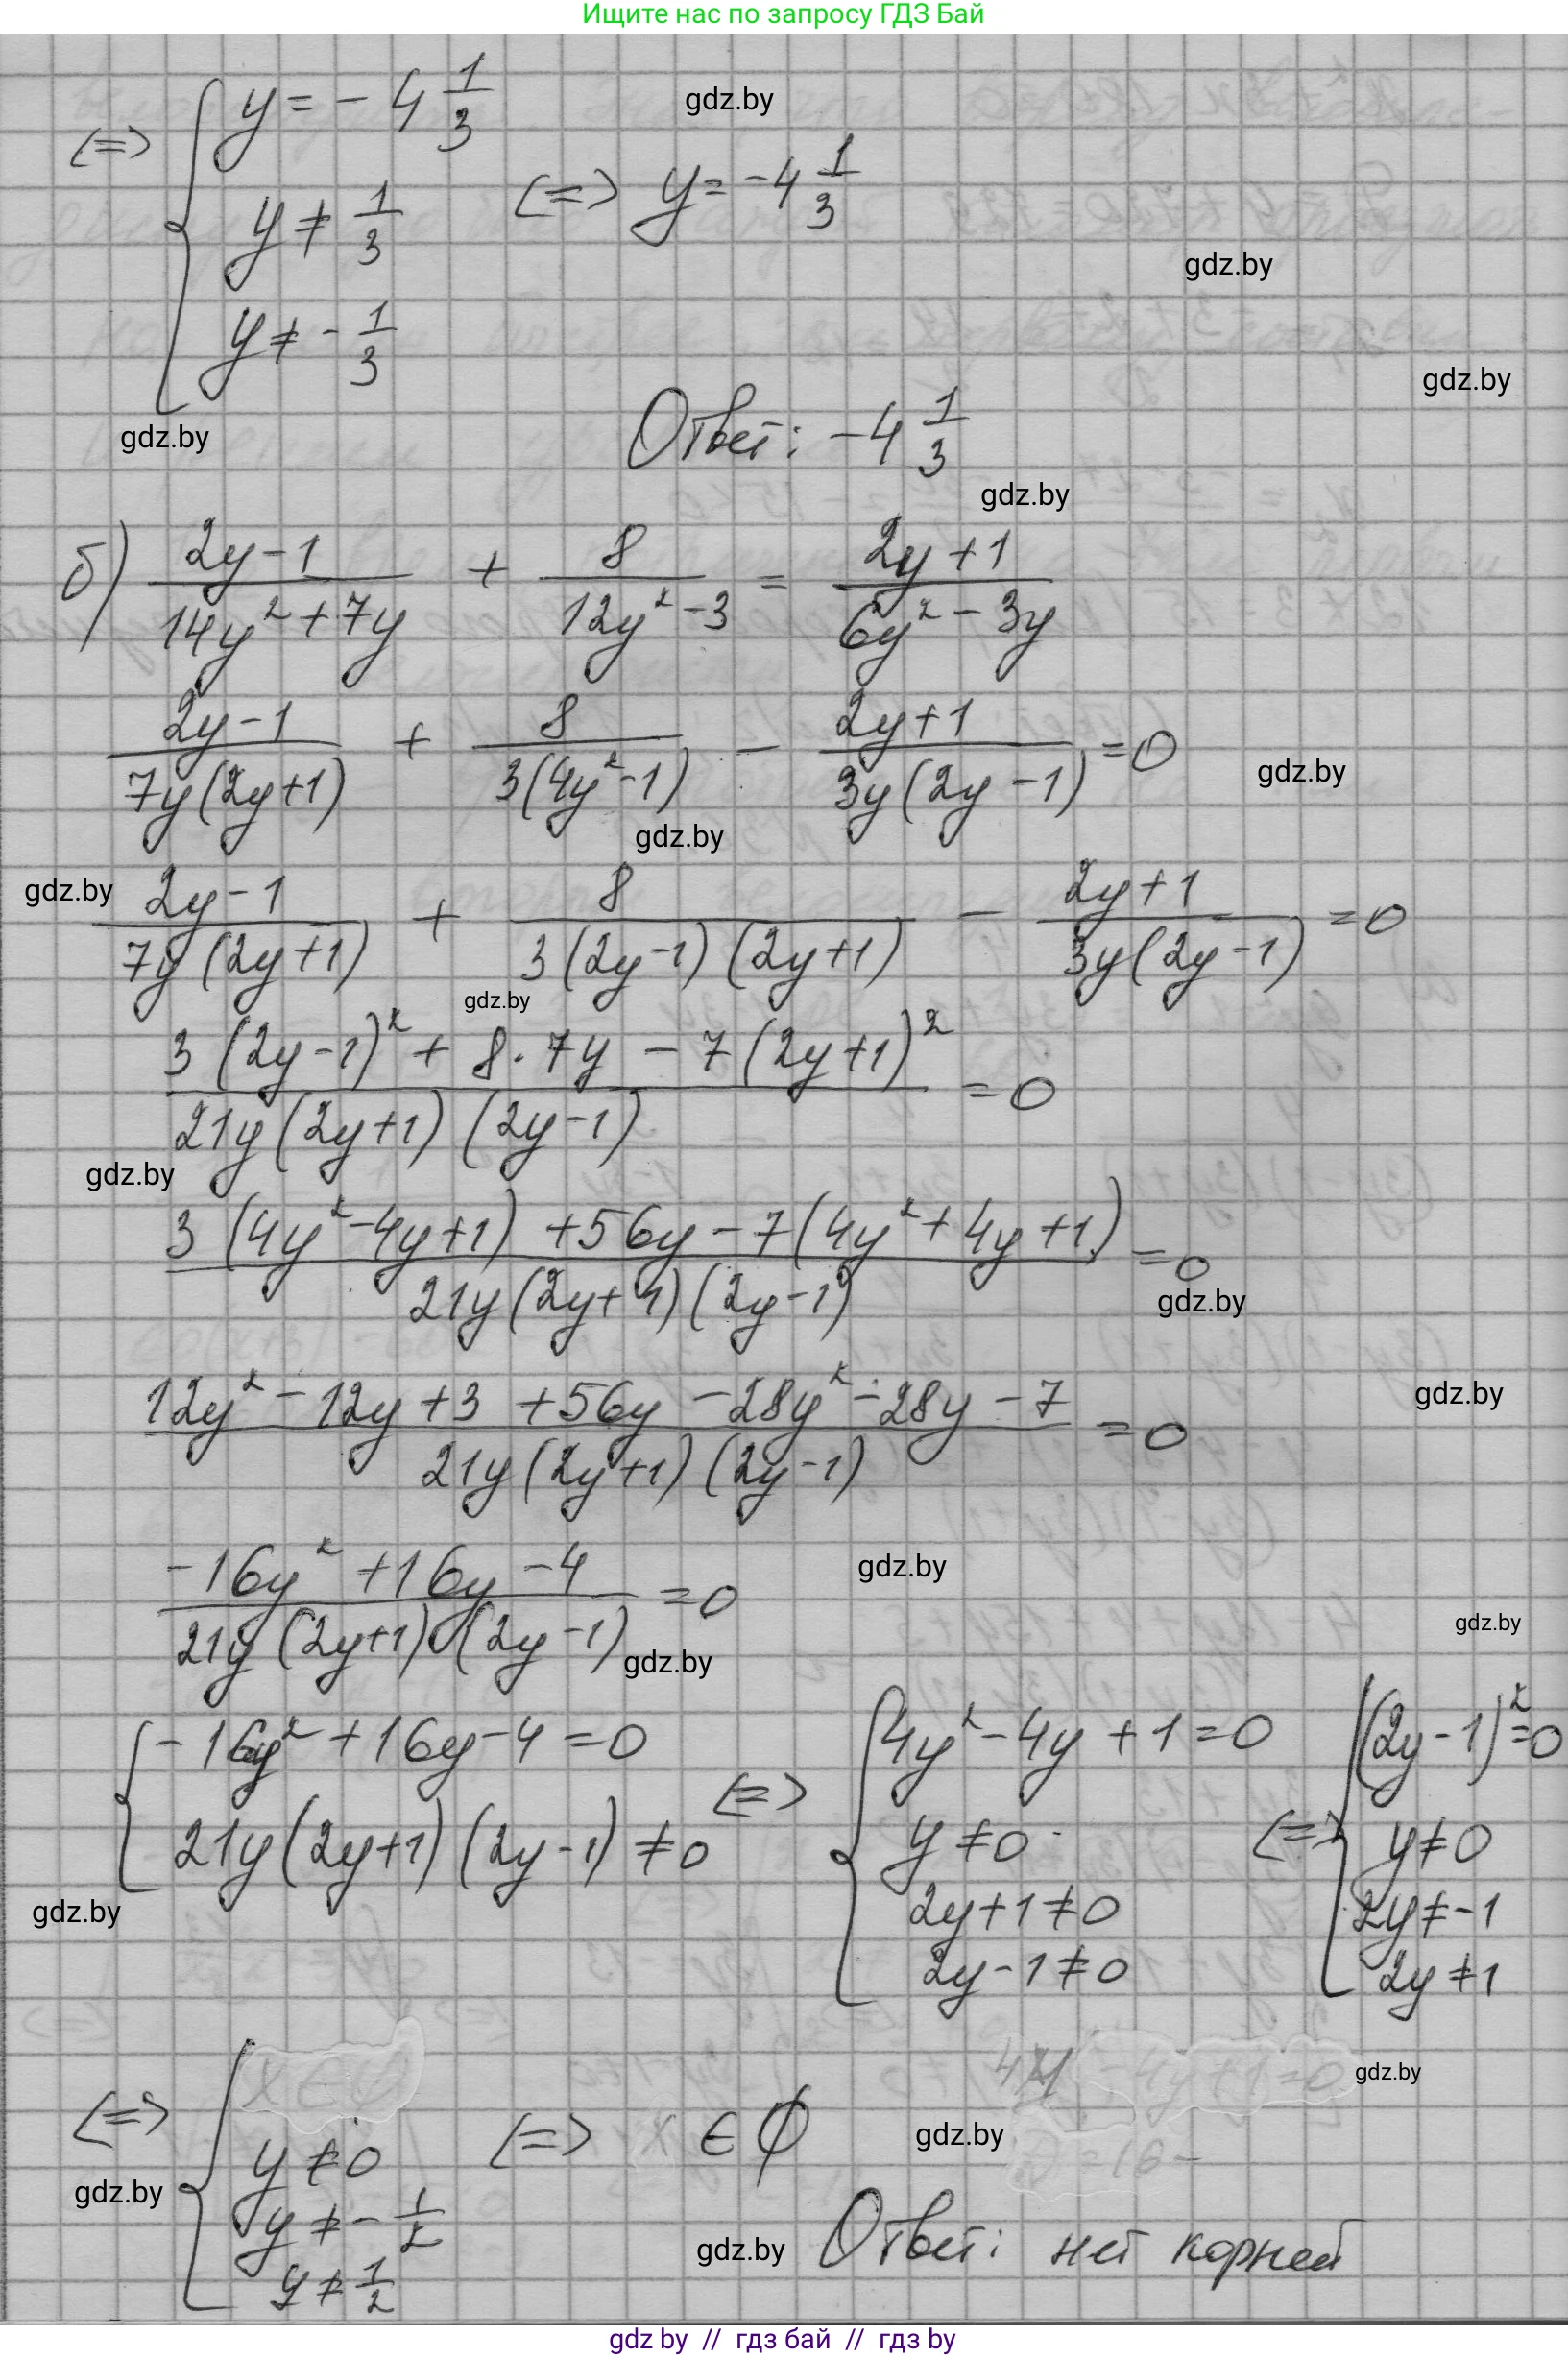 Ищите нас по запросу ГДЗ Бай
(=> { y = -4 1/3
y ≠ 1/3
y ≠ -1/3
(=> y = -4 1/3
gdz.by
gdz.by
gdz.by
gdz.by
Ответ: -4 1/3
gdz.by
б) (2y-1)/(14y²+7y) + 8/(12y²-3) = (2y+1)/(6y²-3y)
(2y-1)/(7y(2y+1)) + 8/(3(4y²-1)) - (2y+1)/(3y(2y-1)) = 0
gdz.by
gdz.by
gdz.by
(2y-1)/(7y(2y+1)) + 8/(3(2y-1)(2y+1)) - (2y+1)/(3y(2y-1)) = 0
gdz.by
(3(2y-1)² + 8·7y - 7(2y+1)²)/(21y(2y+1)(2y-1)) = 0
gdz.by
(3(4y²-4y+1) + 56y - 7(4y²+4y+1))/(21y(2y+1)(2y-1)) = 0
gdz.by
(12y² - 12y + 3 + 56y - 28y² - 28y - 7)/(21y(2y+1)(2y-1)) = 0
gdz.by
(-16y² + 16y - 4)/(21y(2y+1)(2y-1)) = 0
gdz.by
gdz.by
gdz.by
{ -16y² + 16y - 4 = 0
21y(2y+1)(2y-1) ≠ 0
(=> { 4y² - 4y + 1 = 0
y ≠ 0
2y+1 ≠ 0
2y-1 ≠ 0
(=> { (2y-1)² = 0
y ≠ 0
2y ≠ -1
2y ≠ 1
gdz.by
gdz.by
(=> { y ≠ 0
y ≠ -1/2
y ≠ 1/2
(=> x ∈ ∅
gdz.by
gdz.by
gdz.by
Ответ: нет корней
gdz.by // гдз бай // гдз by